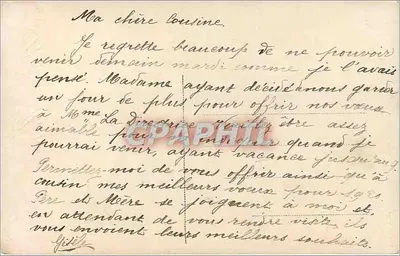 Ma chère Cousine
Je regrette beaucoup de ne pouvoir
venir demain mardi comme je l'avais
pensé. Madame ayant décidé nous garder
un jour de plus pour offrir nos vœux
à Mme La Directrice être assez
aimable pour quand je
pourrai venir, ayant vacance jusqu'au 9.
Permettez-moi de vous offrir ainsi qu'à
cousin mes meilleurs vœux pour
Père et Mère se joignent à moi et,
en attendant de vous rendre visite, ils
vous envoient leurs meilleurs souhaits.
Gisèle
CPAPHIL